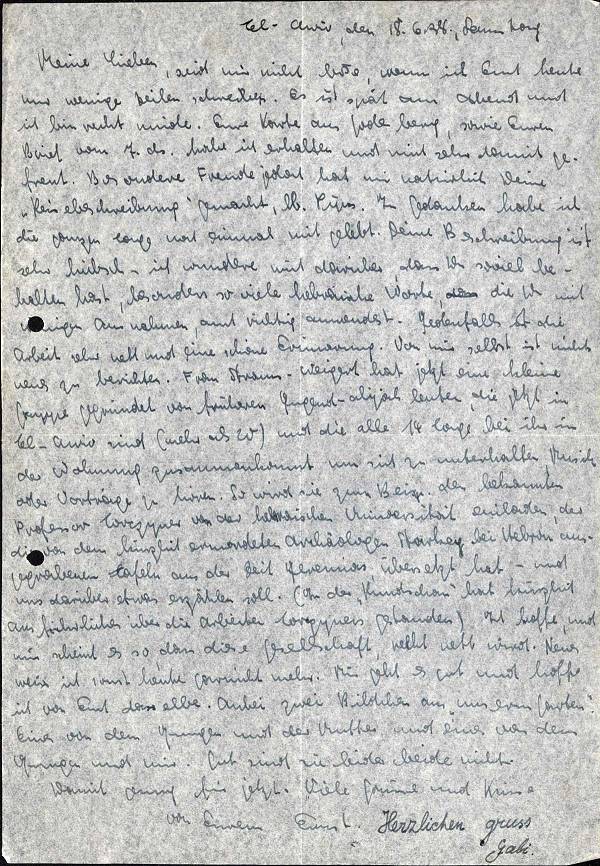 Tel-Aviv, den 18.6.38., Samstag
Meine Lieben, seid mir nicht böse, wenn ich Euch heute
nur wenige Zeilen schreibe. Es ist spät am Abend und
ich bin recht müde. Eure Karte aus Godesberg, sowie Euren
Brief vom 7. ds. habe ich erhalten und mich sehr damit ge-
freut. Besondere Freude jedoch hat mir natürlich Deine
"Reisebeschreibung" gemacht, lb. In Gedanken habe ich
die ganzen Tage noch einmal mit gelebt. Deine Beschreibung ist
sehr hübsch - ich wundere mich darüber dass Du soviel be-
halten hast, besonders so viele hebräische Worte, die Du mit
wenigen Ausnahmen, auch richtig anwendest. Jedenfalls ist die
Arbeit sehr nett und eine schöne Erinnerung. Von mir selbst ist nichts
neues zu berichten. Frau Straus-Weigert hat jetzt eine kleine
Gruppe gegründet von früheren Jugend-alijah leuten, die jetzt in
Tel-Aviv sind (mehr als 20) und die alle 14 Tage bei ihr in
der Wohnung zusammenkommt um sich zu unterhalten, Musik
oder Vorträge zu hören. So wird sie zum Beisp. den bekannten
Professor Torczyner von der hebräischen Universität einladen, der
die von dem kürzlich ermordeten Archäologen Starkey bei Hebron aus-
gegrabenen Tafeln aus der Zeit Jeremias übersetzt hat - und
uns darüber etwas erzählen soll. (In der "Rundschau" hat kürzlich
ausführliches über die Arbeiten Torczyners gestanden) Ich hoffe, und
mir scheint es so, dass diese Gesellschaft, recht nett wird. Neues
weiss ich sonst heute garnicht mehr. Mir geht es gut und hoffe
ich von Euch dasselbe. Anbei zwei Bildchen aus unserm Garten.
Eines von dem Jungen und der Mutter und eines von dem
Jungen und mir. Gut sind sie leider beide nicht.
Damit genug für jetzt. Viele Grüsse und Küsse
von Eurem Ernst. Herzlichen gruss
Gabi.